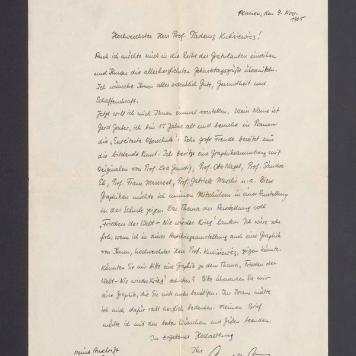 Plauen, den 9. Nov. 1985
Hochverehrter Herr Prof. Tadeusz Kulisiewicz!
Auch ich möchte mich in die Reihe der Gratulanten einreihen
und Ihnen die allerherzlichsten Geburtstagsgrüße übermitteln.
Ich wünsche Ihnen alles erdenklich Gute, Gesundheit und
Schaffenskraft.
Jetzt will ich mich Ihnen einmal vorstellen. Mein Name ist
Gerd Gruber, ich bin 15 Jahre alt und besuche in Plauen
die Oberschule. Sehr große Freude bereitet mir
die bildende Kunst. Ich besitze eine Graphiksammlung mit
Originalen von Prof. Lea Grundig, Prof. Otto Nagel, Prof. Sándor
Ék, Prof. Frans Masereel, Prof. Gabriele Mucchi u.a. Diese
Graphiken möchte ich meinen Mitschülern in einer Ausstellung
in der Schule zeigen. Das Thema der Ausstellung soll
"Frieden der Welt - Nie wieder Krieg" lauten. Ich wäre sehr
froh, wenn ich in dieser Ausstellung auch eine Graphik
von Ihnen, hochverehrter Herr Prof. Kulisiewicz, zeigen könnte.
Könnten Sie mir bitte eine Graphik zu dem Thema "Frieden der
Welt - Nie wieder Krieg" schicken? Bitte übersenden Sie mir
eine Graphik, die Sie nicht mehr benötigen. Im Voraus möchte
ich mich dafür recht herzlich bedanken. Meinen Brief
möchte ich mit den besten Wünschen und Grüßen beenden.
In ergebener Hochachtung
Ihr
meine Anschrift